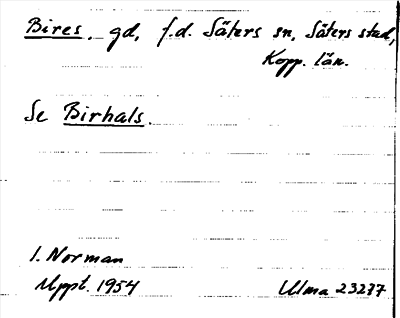 Bires, gd, f.d. Säters sn, Säters stad,
Kopp. län.
Se Birhals.
I. Norman
Uppt. 1954
Ulma 23237